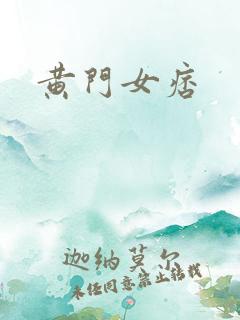 黄門女痞
迦納莫尔
未经同意禁止转载